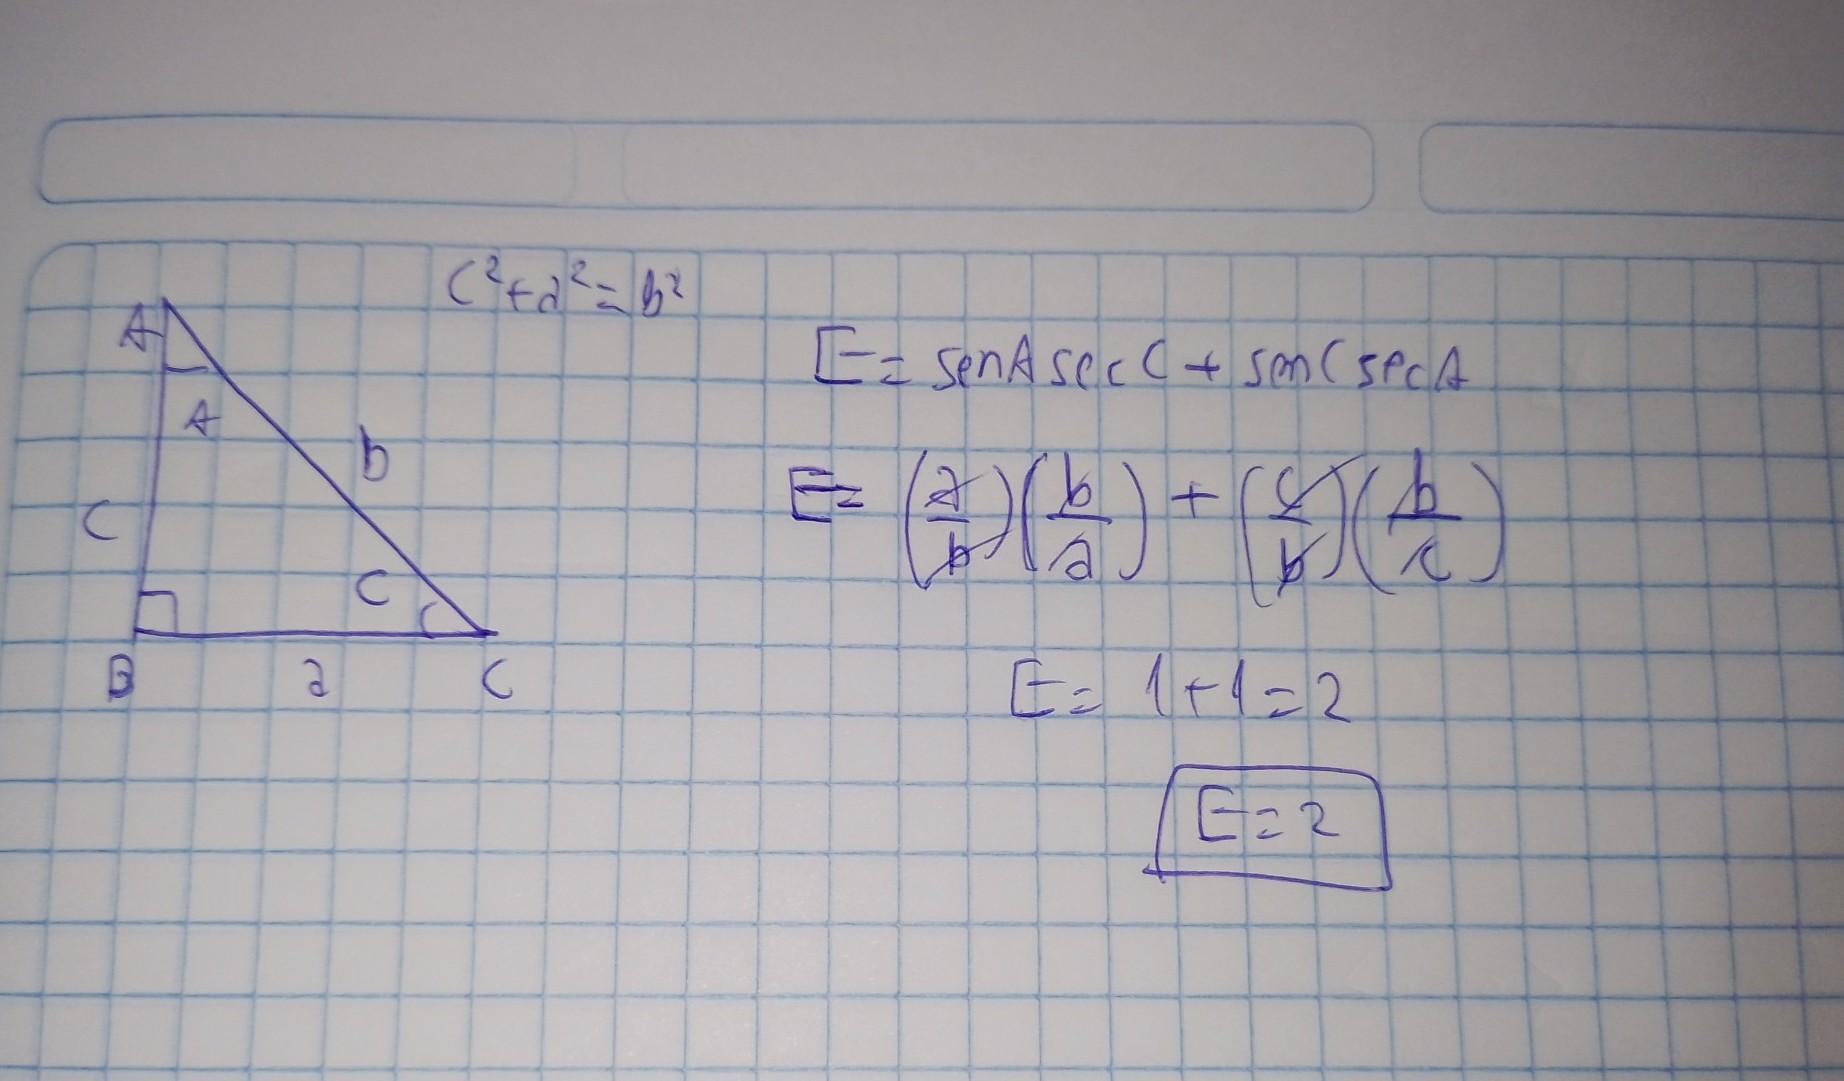 c²+a²=b²
A
A
b
c
C
B a C
E= senA sec C + senC secA
E= (a/b)(b/a) + (c/b)(b/c)
E= 1+1=2
E=2